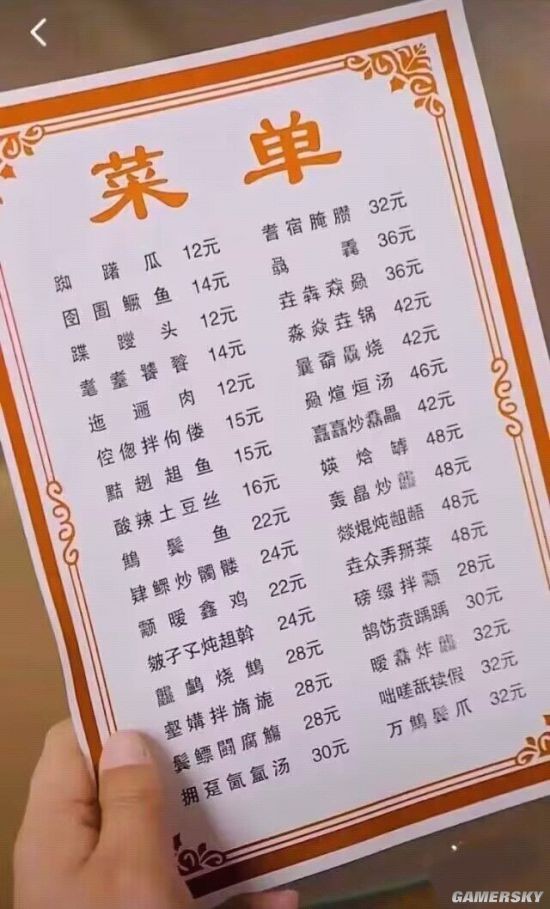 菜单
瓜 12元
鱼 14元
头 12元
耄耋饕餮 14元
迤逦肉 12元
倥偬拌佝偻 15元
黠趔趄鱼 15元
酸辣土豆丝 16元
鬓鱼 22元
肄鳏炒髑髅 24元
颟暧鑫鸡 22元
皴孑孓炖趄斡 24元
烧 28元
壑媾拌旖旎 28元
鬓鳔腐觞 28元
拥趸氤氲汤 30元
耆宿腌臜 32元
36元
垚犇猋骉 36元
淼焱垚锅 42元
烧 42元
骉煊烜汤 46元
嚞嚞炒 42元
媖焓罅 48元
轰皛炒龘 48元
燚焜炖龃龉 48元
垚众弄掰菜 48元
磅缀拌颟 28元
鹄饬贲踽踽 30元
暧炸龘 32元
咄嗟舐犊假 32元
万鬓爪 32元
GAMERSKY